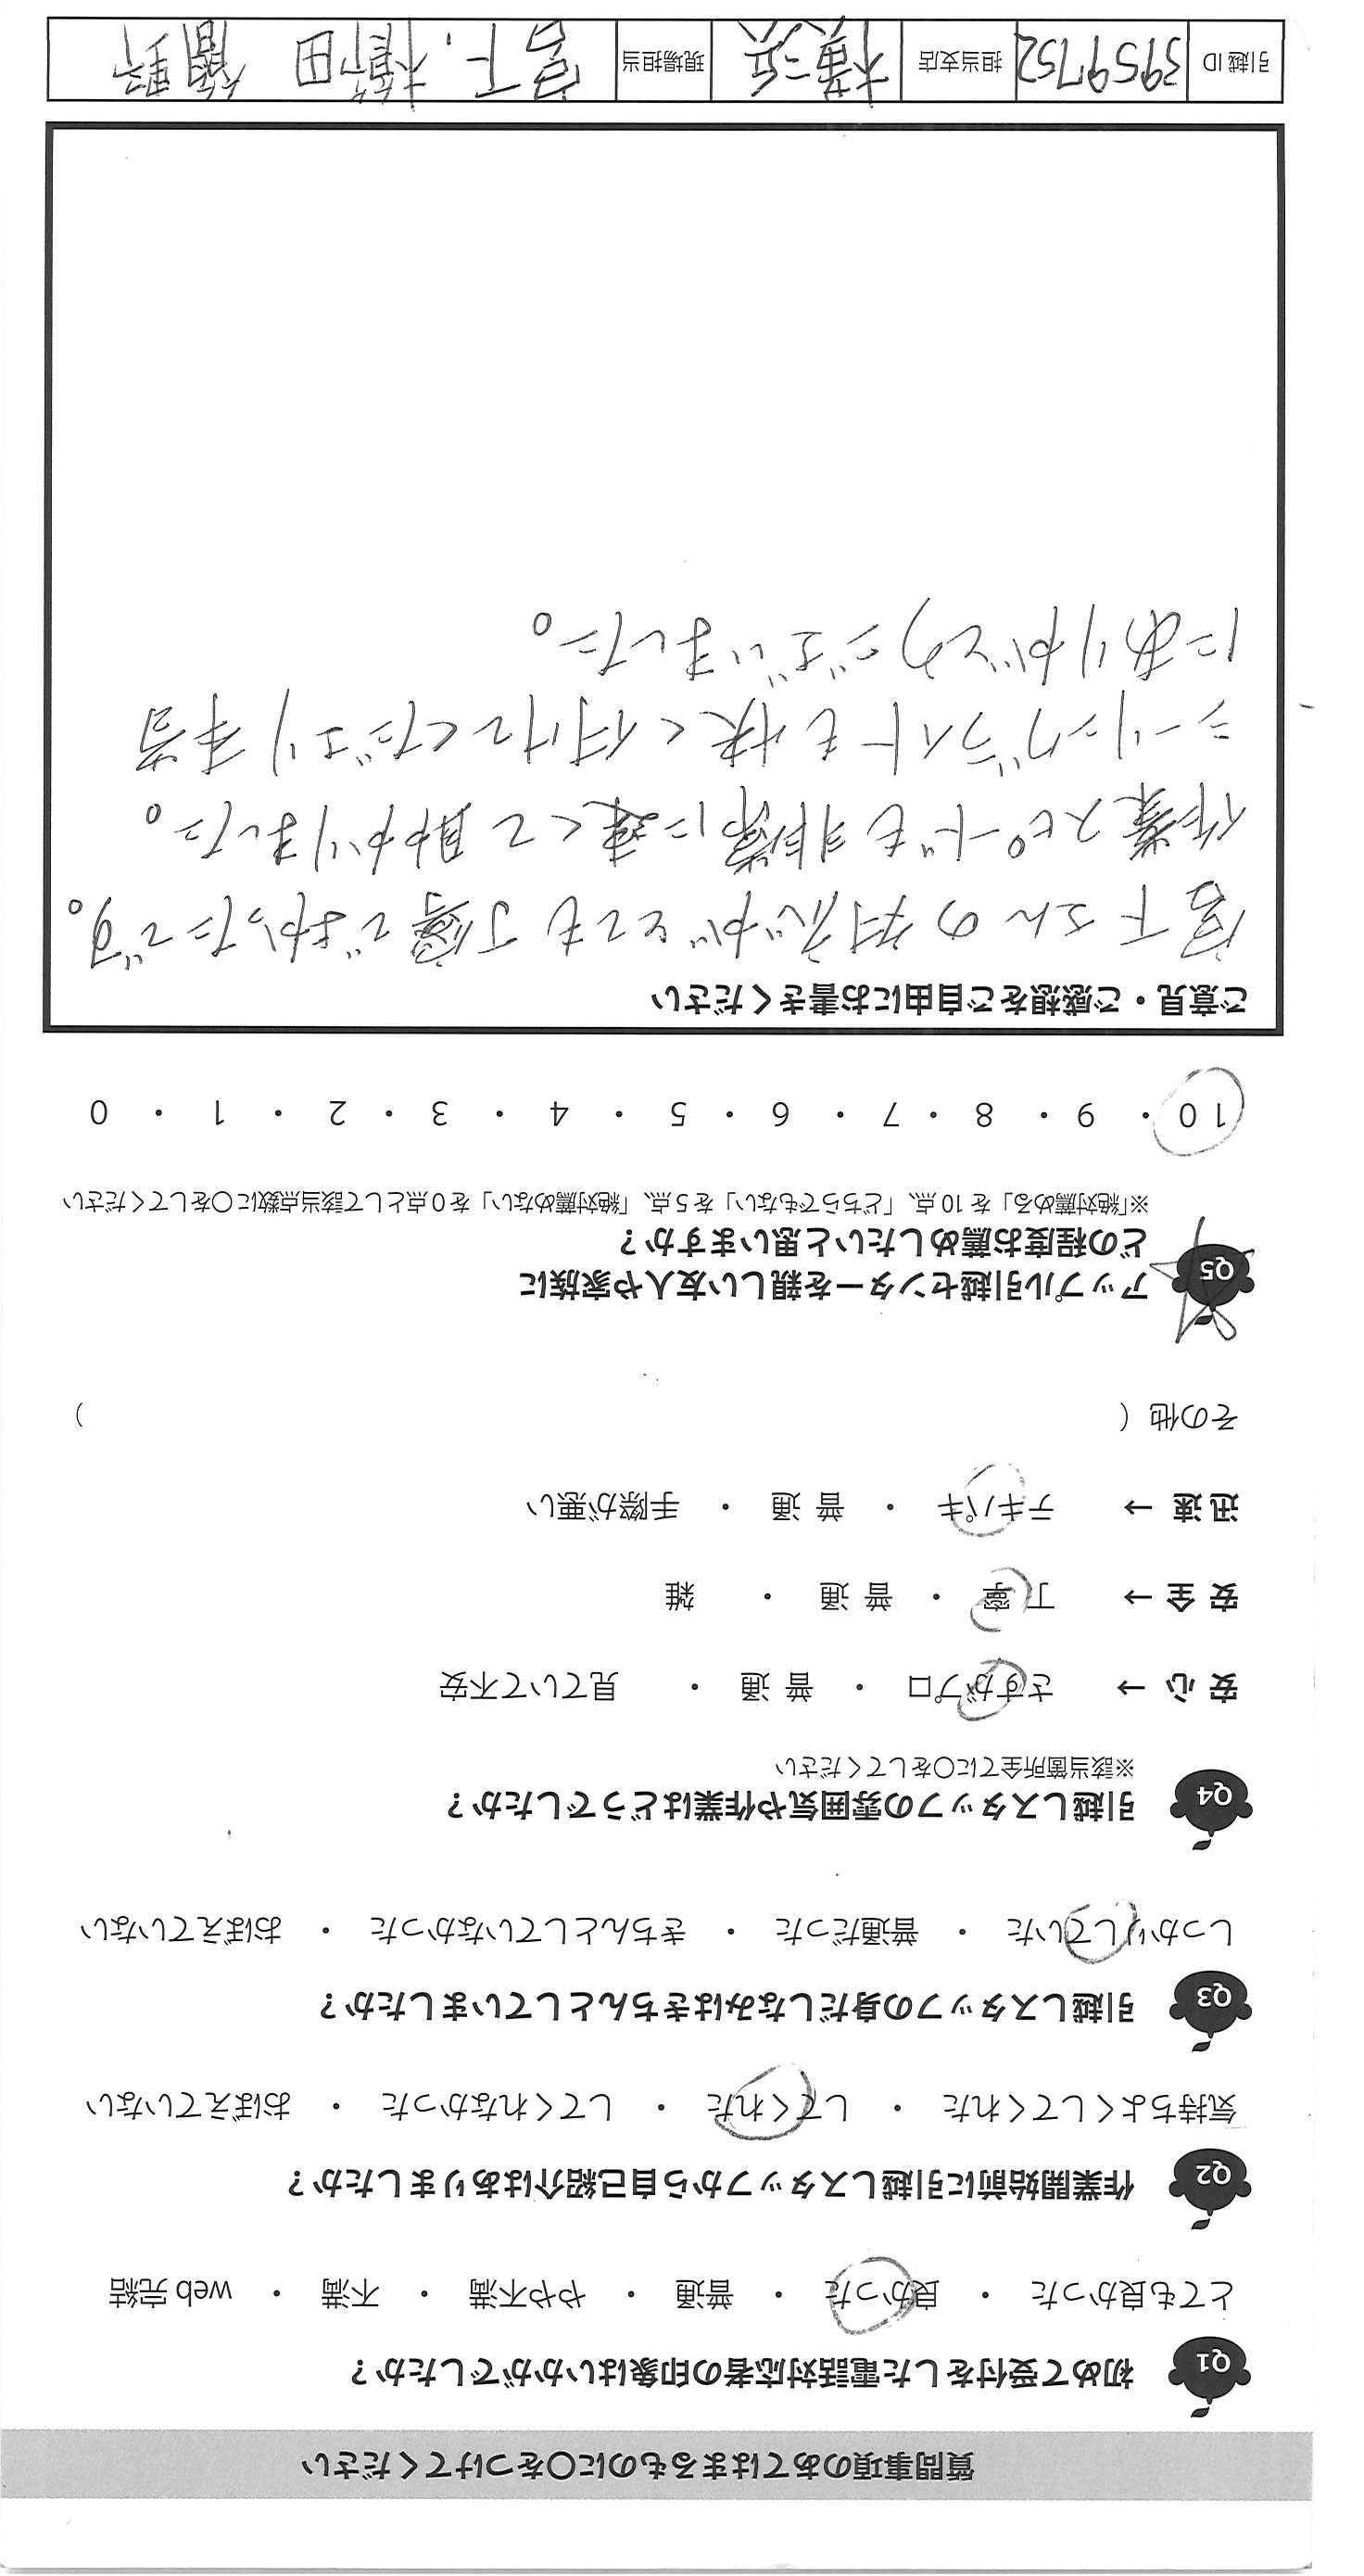 質問事項のあてはまるものに○をつけてください
Q1 初めて受付をした電話対応者の印象はいかがでしたか？
とても良かった ・ 良かった ・ 普通 ・ やや不満 ・ 不満 ・ web 完結
Q2 作業開始前に引越しスタッフから自己紹介はありましたか？
気持ちよくしてくれた ・ してくれた ・ してくれなかった ・ おぼえていない
Q3 引越しスタッフの身だしなみはきちんとしていましたか？
しっかりしていた ・ 普通だった ・ きちんとしていなかった ・ おぼえていない
Q4 引越しスタッフの雰囲気や作業はどうでしたか？
※該当箇所全てに○をして下さい
安 心 → さすがプロ ・ 普 通 ・ 見ていて不安
安 全 → 丁 寧 ・ 普 通 ・ 雑
迅 速 → テキパキ ・ 普 通 ・ 手際が悪い
その他（ ）
Q5 アップル引越センターを親しい友人や家族に
どの程度お薦めしたいと思いますか？
※「絶対薦める」を 10 点、「どちらでもない」を 5 点、「絶対薦めない」を 0 点として該当点数に○をしてください
10 ・ 9 ・ 8 ・ 7 ・ 6 ・ 5 ・ 4 ・ 3 ・ 2 ・ 1 ・ 0
ご意見・ご感想をご自由にお書きください
宮下さんの対応がとても丁寧でよかったです。
作業スピードも非常に速くて助かりました。
シーリングライトも快く付けてくださり本当
にありがとうございました。
引越 ID 3959752 担当支店 横浜 現場担当 宮下. 楢田 菅野